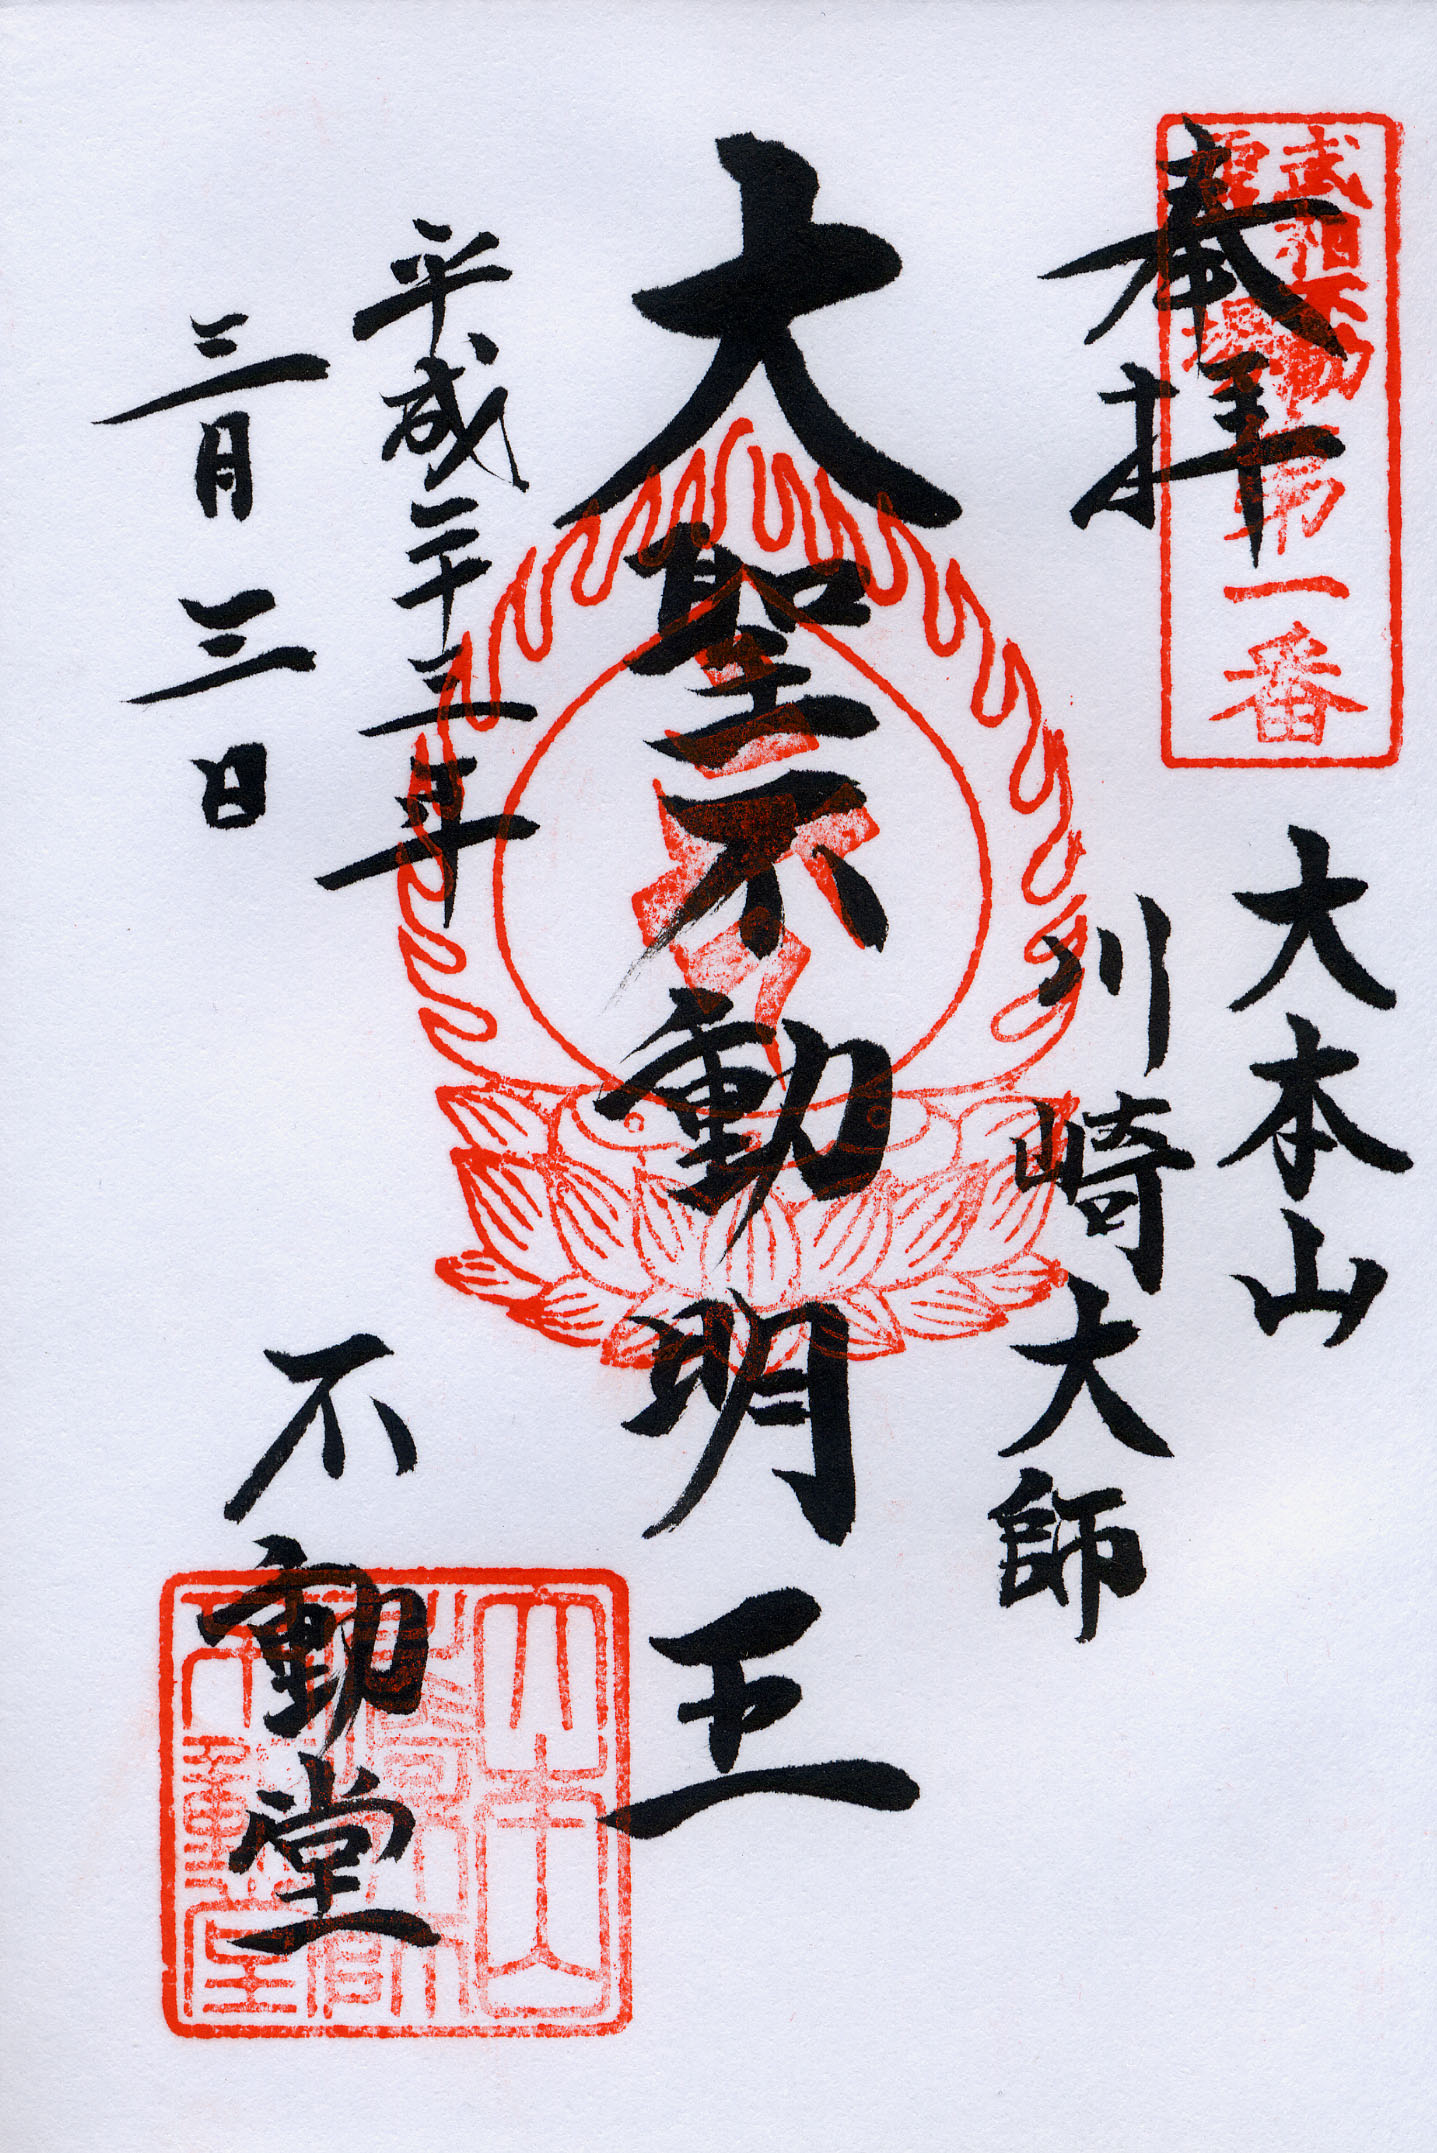 奉拝
武相不動
霊場
第一番
大本山
川崎大師
大聖不動明王
平成二十三年
三月三日
不動堂